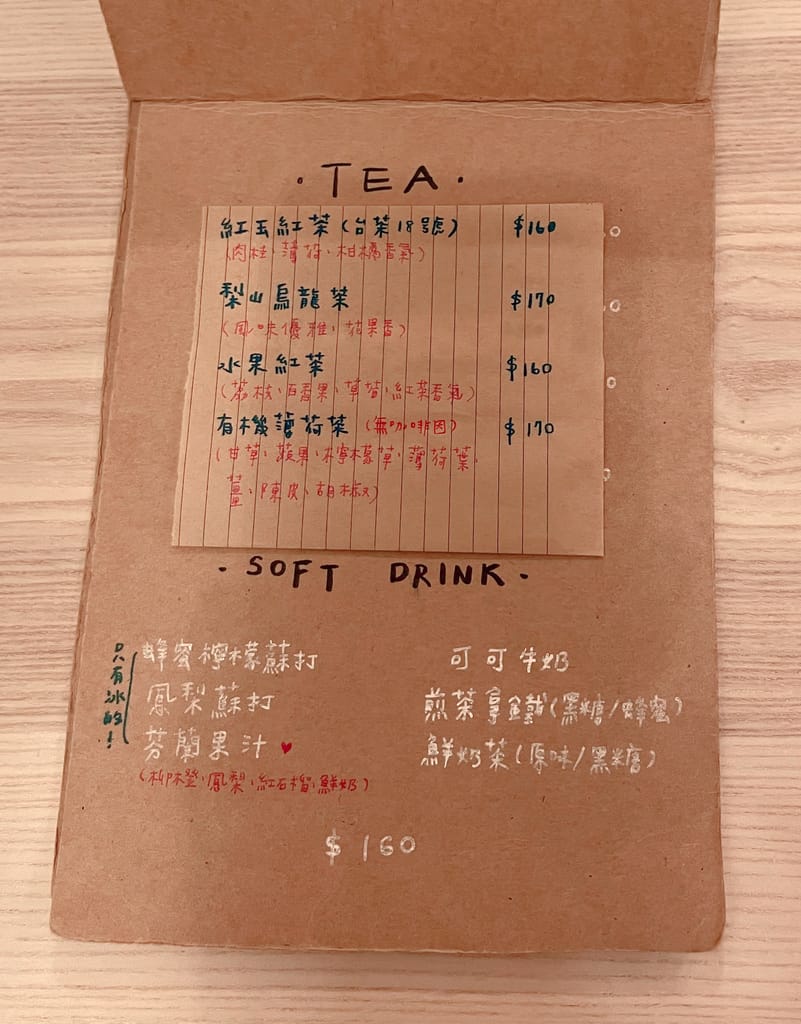 ·TEA·
紅玉紅茶(台茶18號) $160
(肉桂、薄荷、柑橘香氣)
梨山烏龍茶 $170
(風味優雅、花果香)
水果紅茶 $160
(荔枝、百香果、草莓、紅茶香氣)
有機薄荷茶(無咖啡因) $170
(甘草、蘋果、檸檬草、薄荷葉、
薑、陳皮、胡椒)
·SOFT DRINK·
只有冰的!
蜂蜜檸檬蘇打
鳳梨蘇打
芬蘭果汁♥
(柳橙、鳳梨、紅石榴、鮮奶)
可可牛奶
煎茶拿鐵(黑糖/蜂蜜)
鮮奶茶(原味/黑糖)
$160